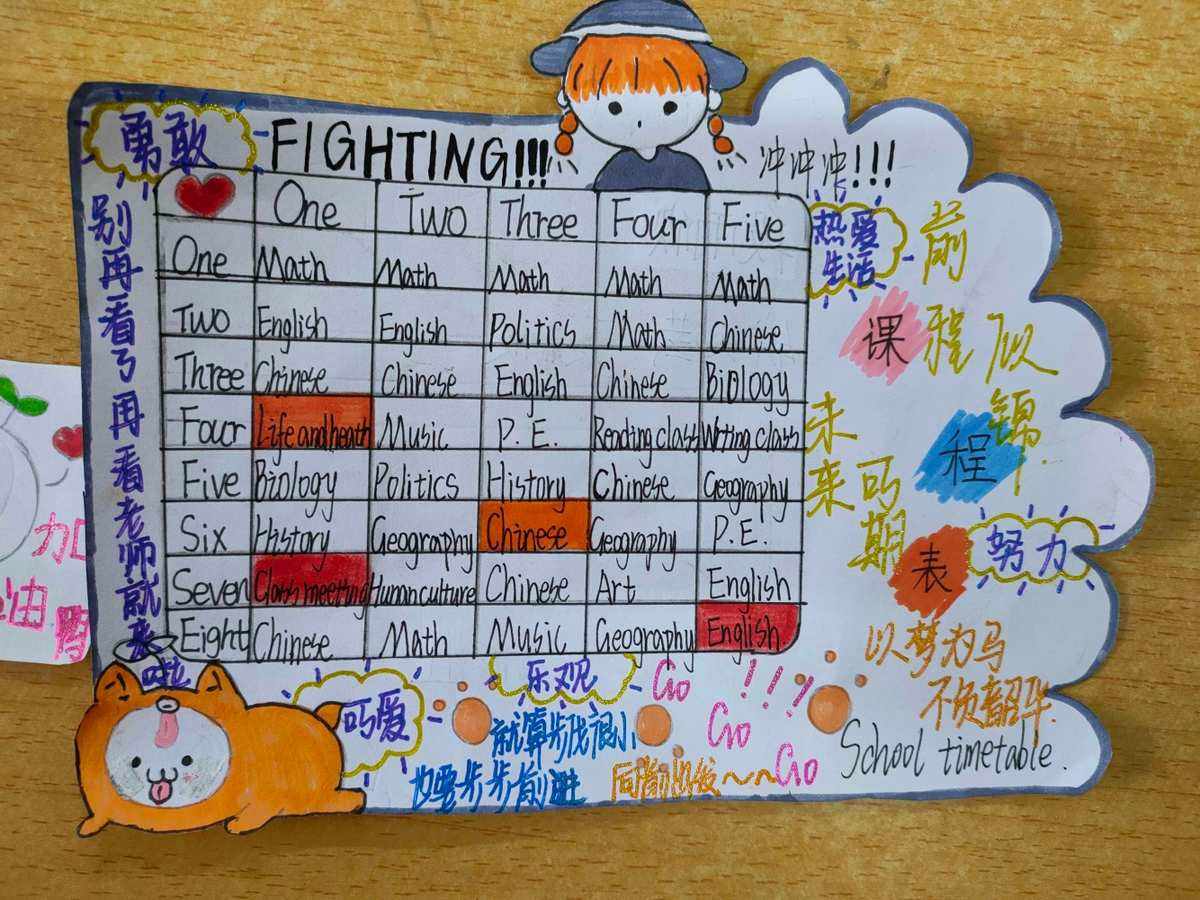 勇敢
FIGHTING!!!
冲冲冲!!!
One Two Three Four Five
One Math Math Math Math Math
Two English English Politics Math Chinese
Three Chinese Chinese English Chinese Biology
Four Life and heath Music P.E. Reading class Writing class
Five Biology Politics History Chinese Geography
Six History Geography Chinese Geography P.E.
Seven Class meeting Human culture Chinese Art English
Eight Chinese Math Music Geography English
别再看了再看老师就来啦
热爱
生活
前程似锦
课程表
未来可期
努力
以梦为马
不负韶华.
School timetable.
可爱
乐观
就算步伐很小
也要步步前进
向前出发~~
Go !!!
Go
Go
加
油